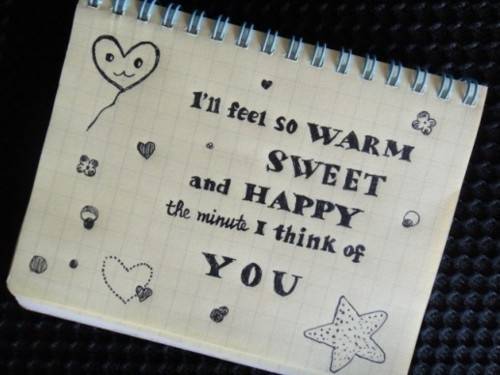 I'll feel so WARM
SWEET
and HAPPY
the minute I think of
YOU